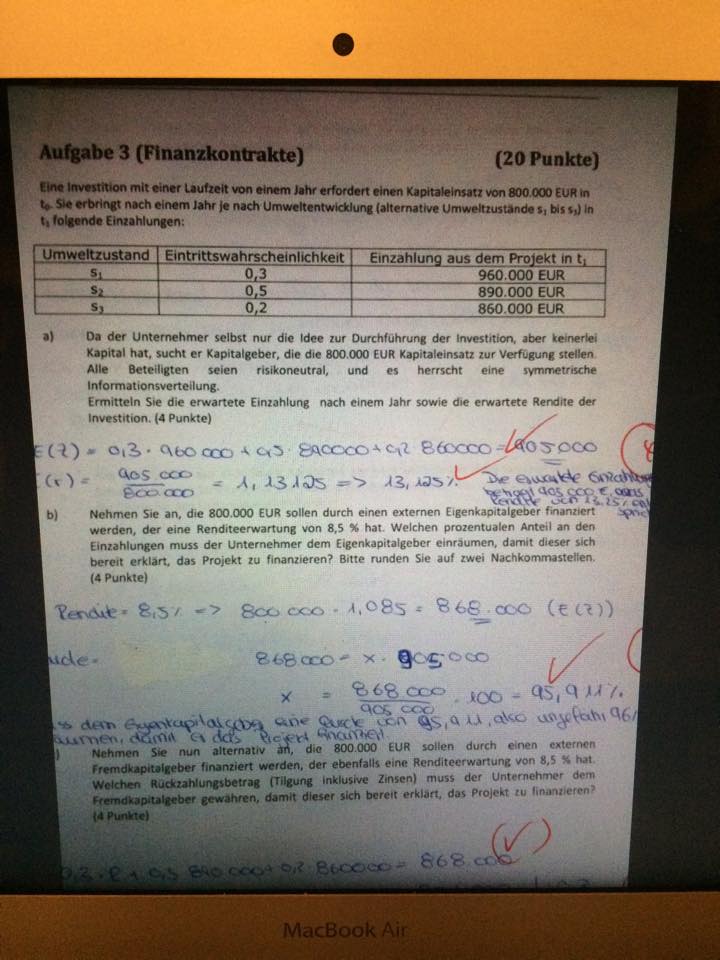 Aufgabe 3 (Finanzkontrakte) (20 Punkte)
Eine Investition mit einer Laufzeit von einem Jahr erfordert einen Kapitaleinsatz von 800.000 EUR in
t₀. Sie erbringt nach einem Jahr je nach Umweltentwicklung (alternative Umweltzustände s₁ bis s₃) in
t₁ folgende Einzahlungen:
Umweltzustand Eintrittswahrscheinlichkeit Einzahlung aus dem Projekt in t₁
s₁ 0,3 960.000 EUR
s₂ 0,5 890.000 EUR
s₃ 0,2 860.000 EUR
a) Da der Unternehmer selbst nur die Idee zur Durchführung der Investition, aber keinerlei
Kapital hat, sucht er Kapitalgeber, die die 800.000 EUR Kapitaleinsatz zur Verfügung stellen.
Alle Beteiligten seien risikoneutral, und es herrscht eine symmetrische
Informationsverteilung.
Ermitteln Sie die erwartete Einzahlung nach einem Jahr sowie die erwartete Rendite der
Investition. (4 Punkte)
E(Z) = 0,3 · 960 000 + 0,5 · 890000 + 0,2 860000 = 905 000
(r) = 905 000 / 800 000 = 1,13125 => 13,125% Die erwartete Einzahlun
beträgt 905 000 €,
Rendite von 13,25%
b) Nehmen Sie an, die 800.000 EUR sollen durch einen externen Eigenkapitalgeber finanziert
werden, der eine Renditeerwartung von 8,5 % hat. Welchen prozentualen Anteil an den
Einzahlungen muss der Unternehmer dem Eigenkapitalgeber einräumen, damit dieser sich
bereit erklärt, das Projekt zu finanzieren? Bitte runden Sie auf zwei Nachkommastellen.
(4 Punkte)
Rendite = 8,5% => 800 000 · 1,085 = 868.000 (E(Z))
868 000 = x · 905 000
x = 868 000 / 905 000 · 100 = 95,911%
ss dem Eigenkapitalgeber eine Quote von 95,911, also ungefähr 96%
äumen, damit er das Projekt finanziert.
) Nehmen Sie nun alternativ an, die 800.000 EUR sollen durch einen externen
Fremdkapitalgeber finanziert werden, der ebenfalls eine Renditeerwartung von 8,5 % hat.
Welchen Rückzahlungsbetrag (Tilgung inklusive Zinsen) muss der Unternehmer dem
Fremdkapitalgeber gewähren, damit dieser sich bereit erklärt, das Projekt zu finanzieren?
(4 Punkte)
0,3 · R + 0,5 890 000 + 0,2 860000 = 868.000
MacBook Air